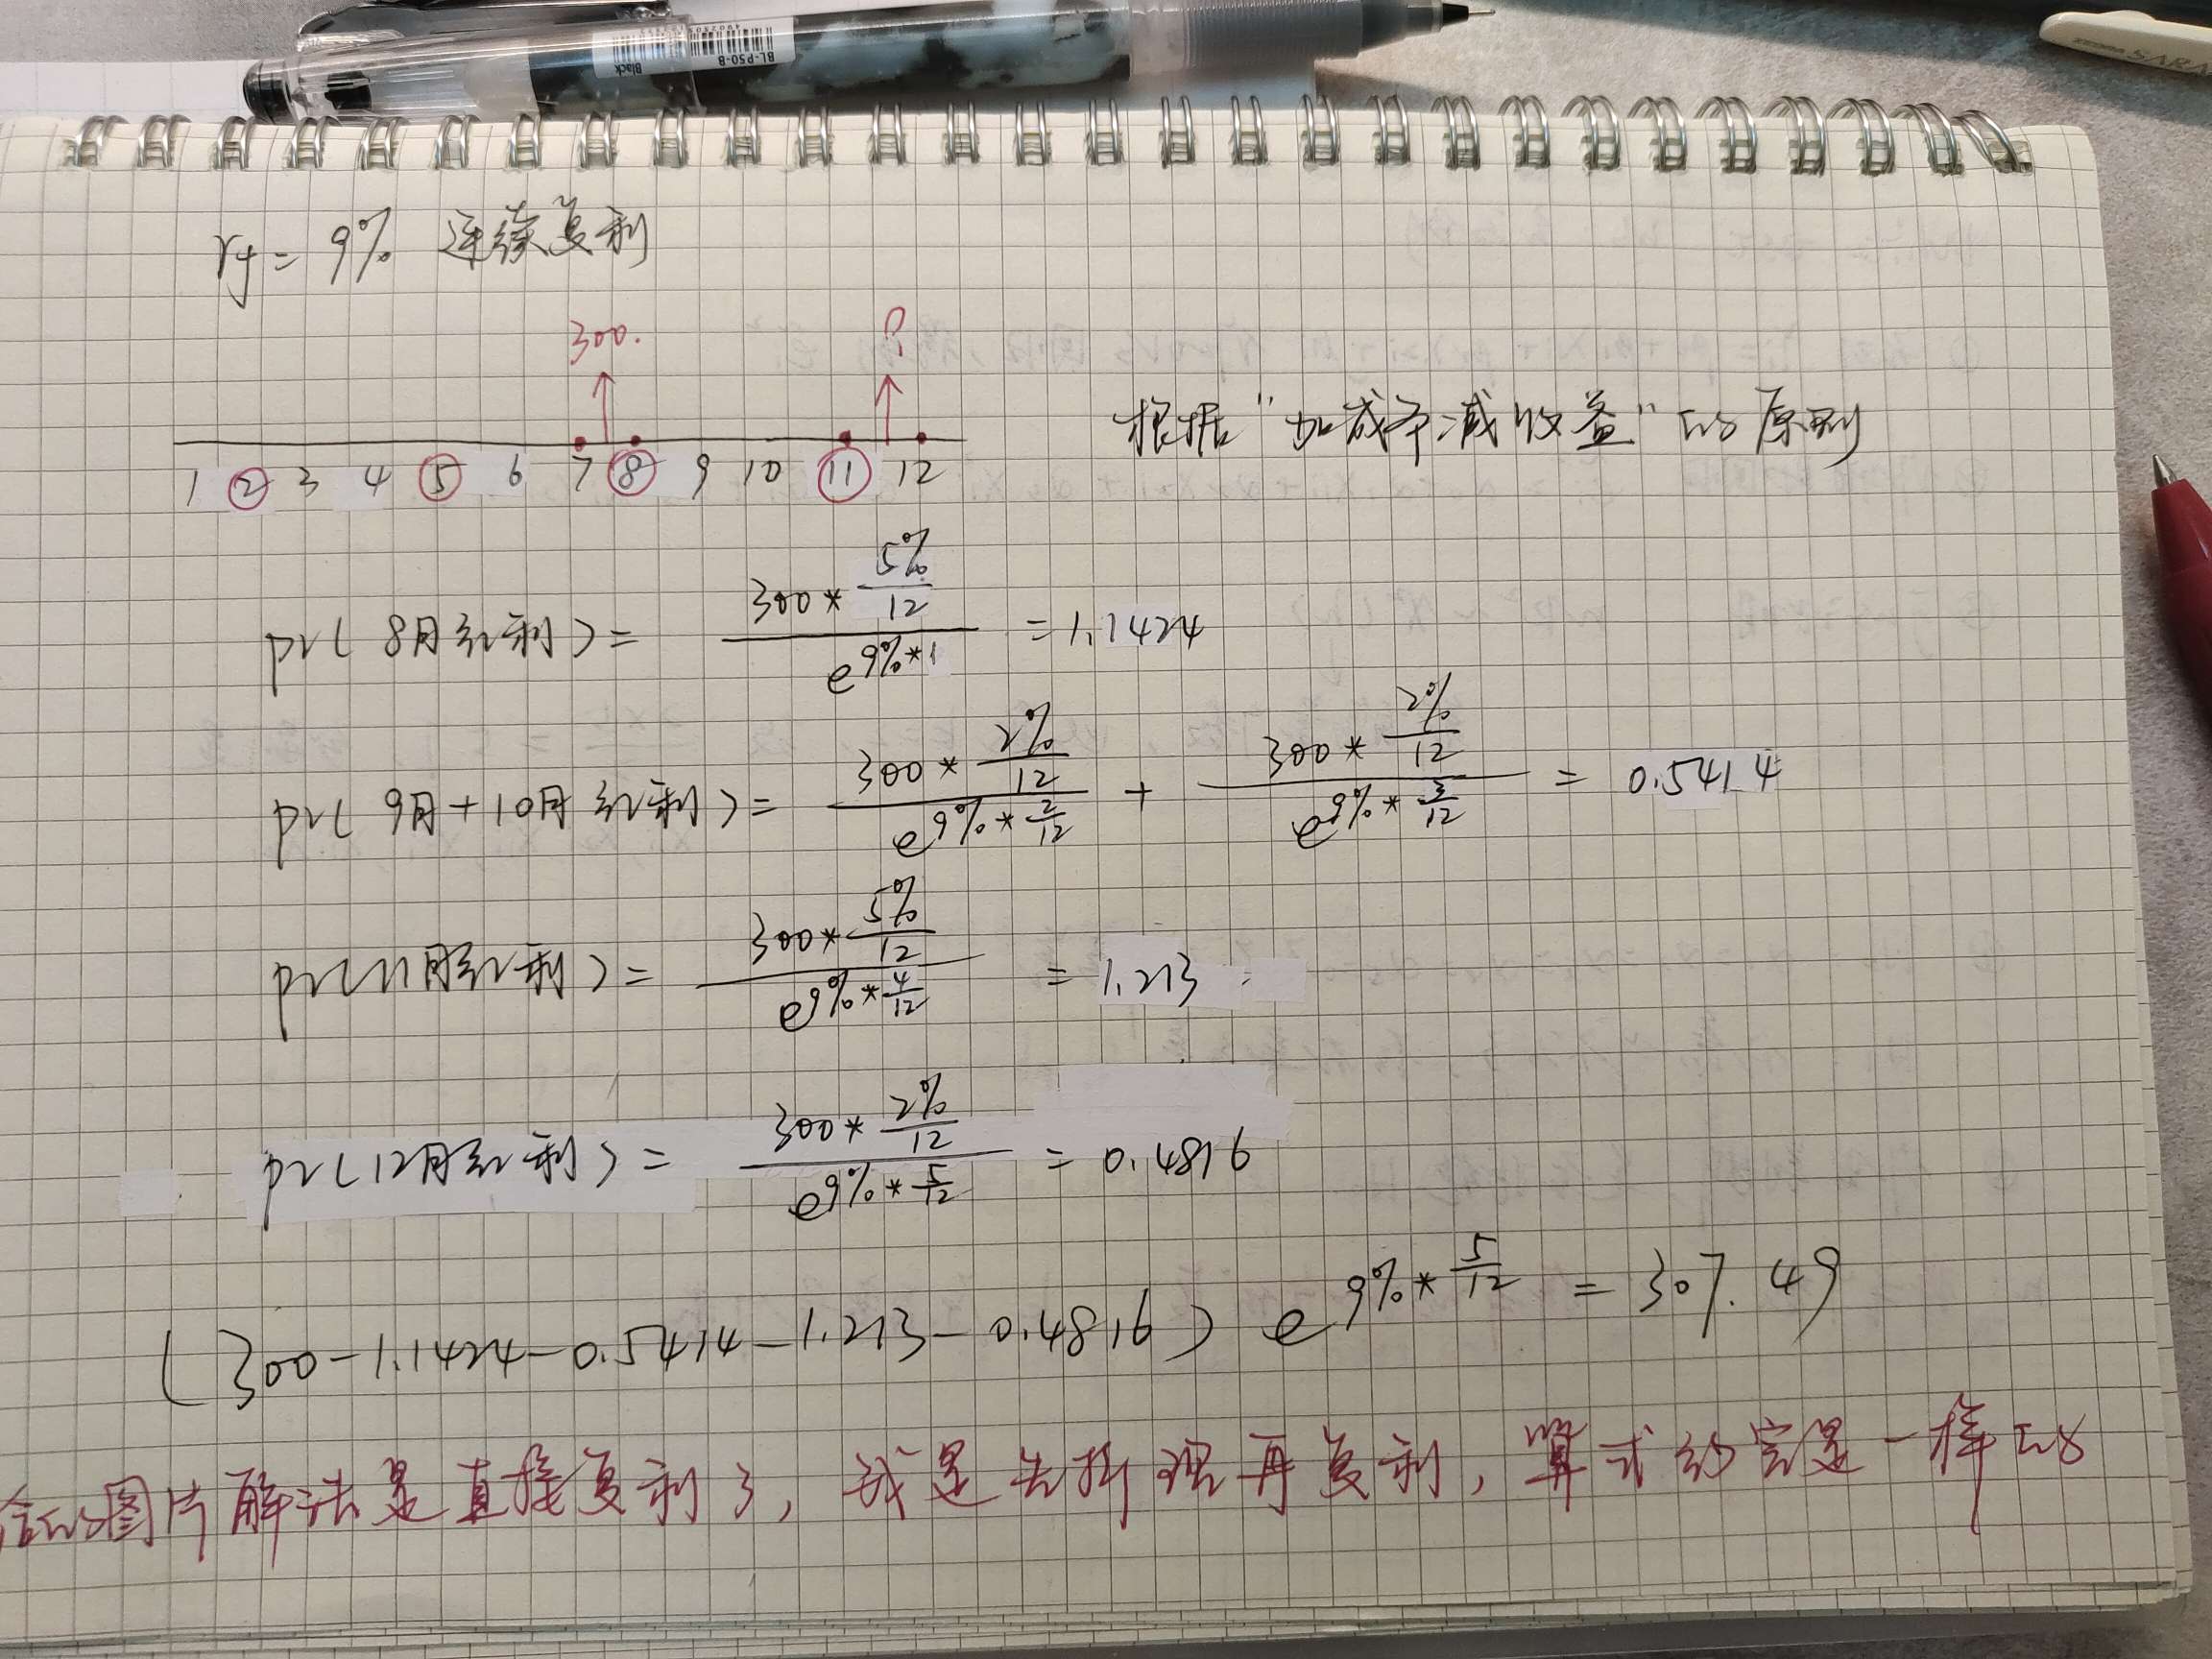 BL-P50-B
Black
rf = 9% 连续复利
300.
?
1 ② 3 4 ⑤ 6 7 ⑧ 9 10 ⑪ 12
根据"加成本减收益"的原则
pv(8月红利) = (300*5%/12)/(e^(9%*1)) = 1.1424
pv(9月+10月红利) = (300*2%/12)/(e^(9%*2/12)) + (300*2%/12)/(e^(9%*3/12)) = 0.5414
pv(11月红利) = (300*5%/12)/(e^(9%*4/12)) = 1.213
pv(12月红利) = (300*2%/12)/(e^(9%*5/12)) = 0.4816
(300-1.1424-0.5414-1.213-0.4816) e^(9%*5/12) = 307.49
给的图片解法是直接复利了, 我是先折现再复利, 算式约定是一样的